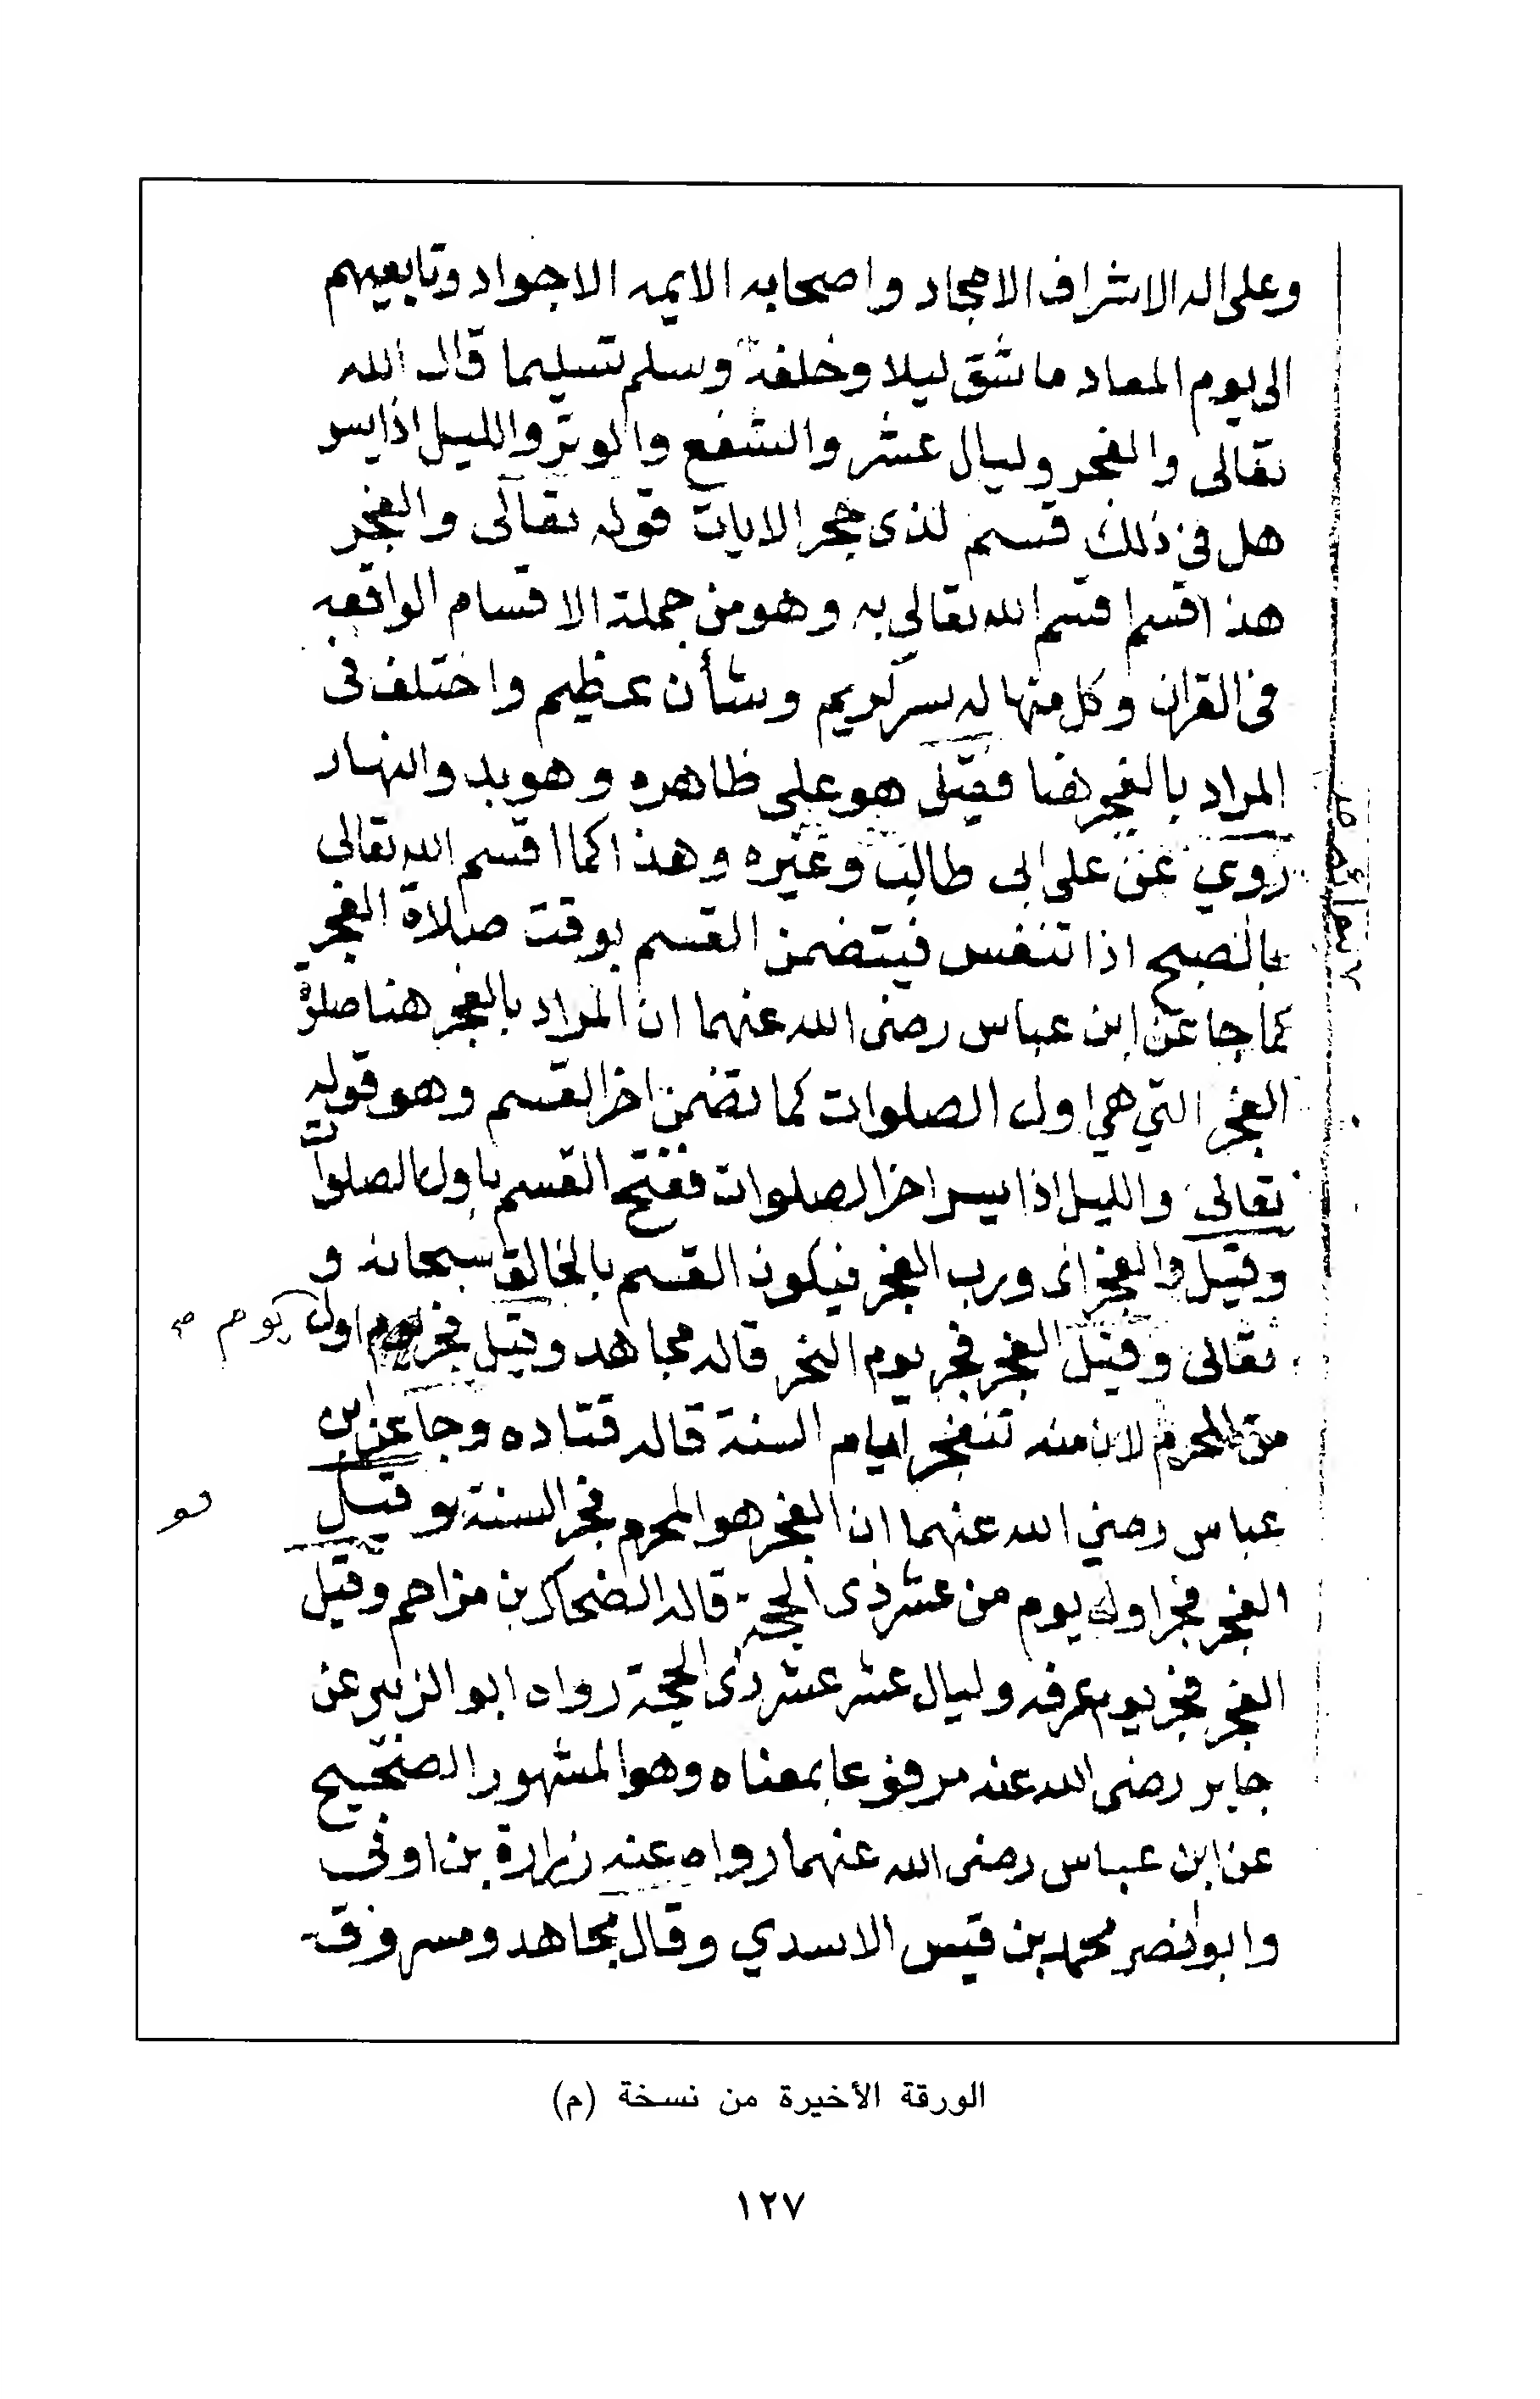 وعلى اله الاشراف الامجاد واصحابه الايمه الاجواد وتابعيهم
الى يوم المعاد ما شق ليلا وخلفه وسلم تسليما قال الله
تعالى والفجر وليال عشر والشفع والوتر والليل اذا يسر
هل في ذلك قسم لذى حجر الايات قوله تعالى والفجر
هذا قسم اقسم الله تعالي به وهو من جملة الاقسام الواقعه
فى القران وكل منها له سر كريم وشأن عظيم واختلف فى
المراد بالفجر هنا فقيل هو على ظاهره وهو بدو النهار
روي عن على ابى طالب وغيره وهذا كما اقسم الله تعالى
بالصبح اذا تنفس فيتضمن القسم بوقت صلاة الفجر
كما جا عن ابن عباس رضى الله عنهما ان المراد بالفجر هنا صلوة
الفجر التي هي اول الصلوات كما تضمن اخر القسم وهو قوله
تعالى والليل اذا يسر اخر الصلوات ففتح القسم باول الصلوات
وقيل والفجر اى ورب الفجر فيكون القسم بالخالق سبحانه و
تعالى وقيل الفجر فجر يوم النحر قاله مجاهد وقيل فجر اول يوم صح
من المحرم لان منه تنفجر ايام السنة قاله قتاده وجا عن ابن
عباس رضي الله عنهما ان الفجر هو المحرم فجر السنة وقيل
الفجر فجر اول يوم من عشر ذى الحجة قاله الضحاك بن مزاحم وقيل
الفجر فجر يوم عرفه وليال عشر عشر ذى الحجة رواه ابو الزبير عن
جابر رضى الله عنه مرفوعا بمعناه وهو المشهور الصحيح
عن ابن عباس رضى الله عنهما رواه عنه زرارة بن اوفى
وابو نصر محمد بن قيس الاسدي وقال مجاهد ومسروق
الورقة الأخيرة من نسخة (م)
١٢٧